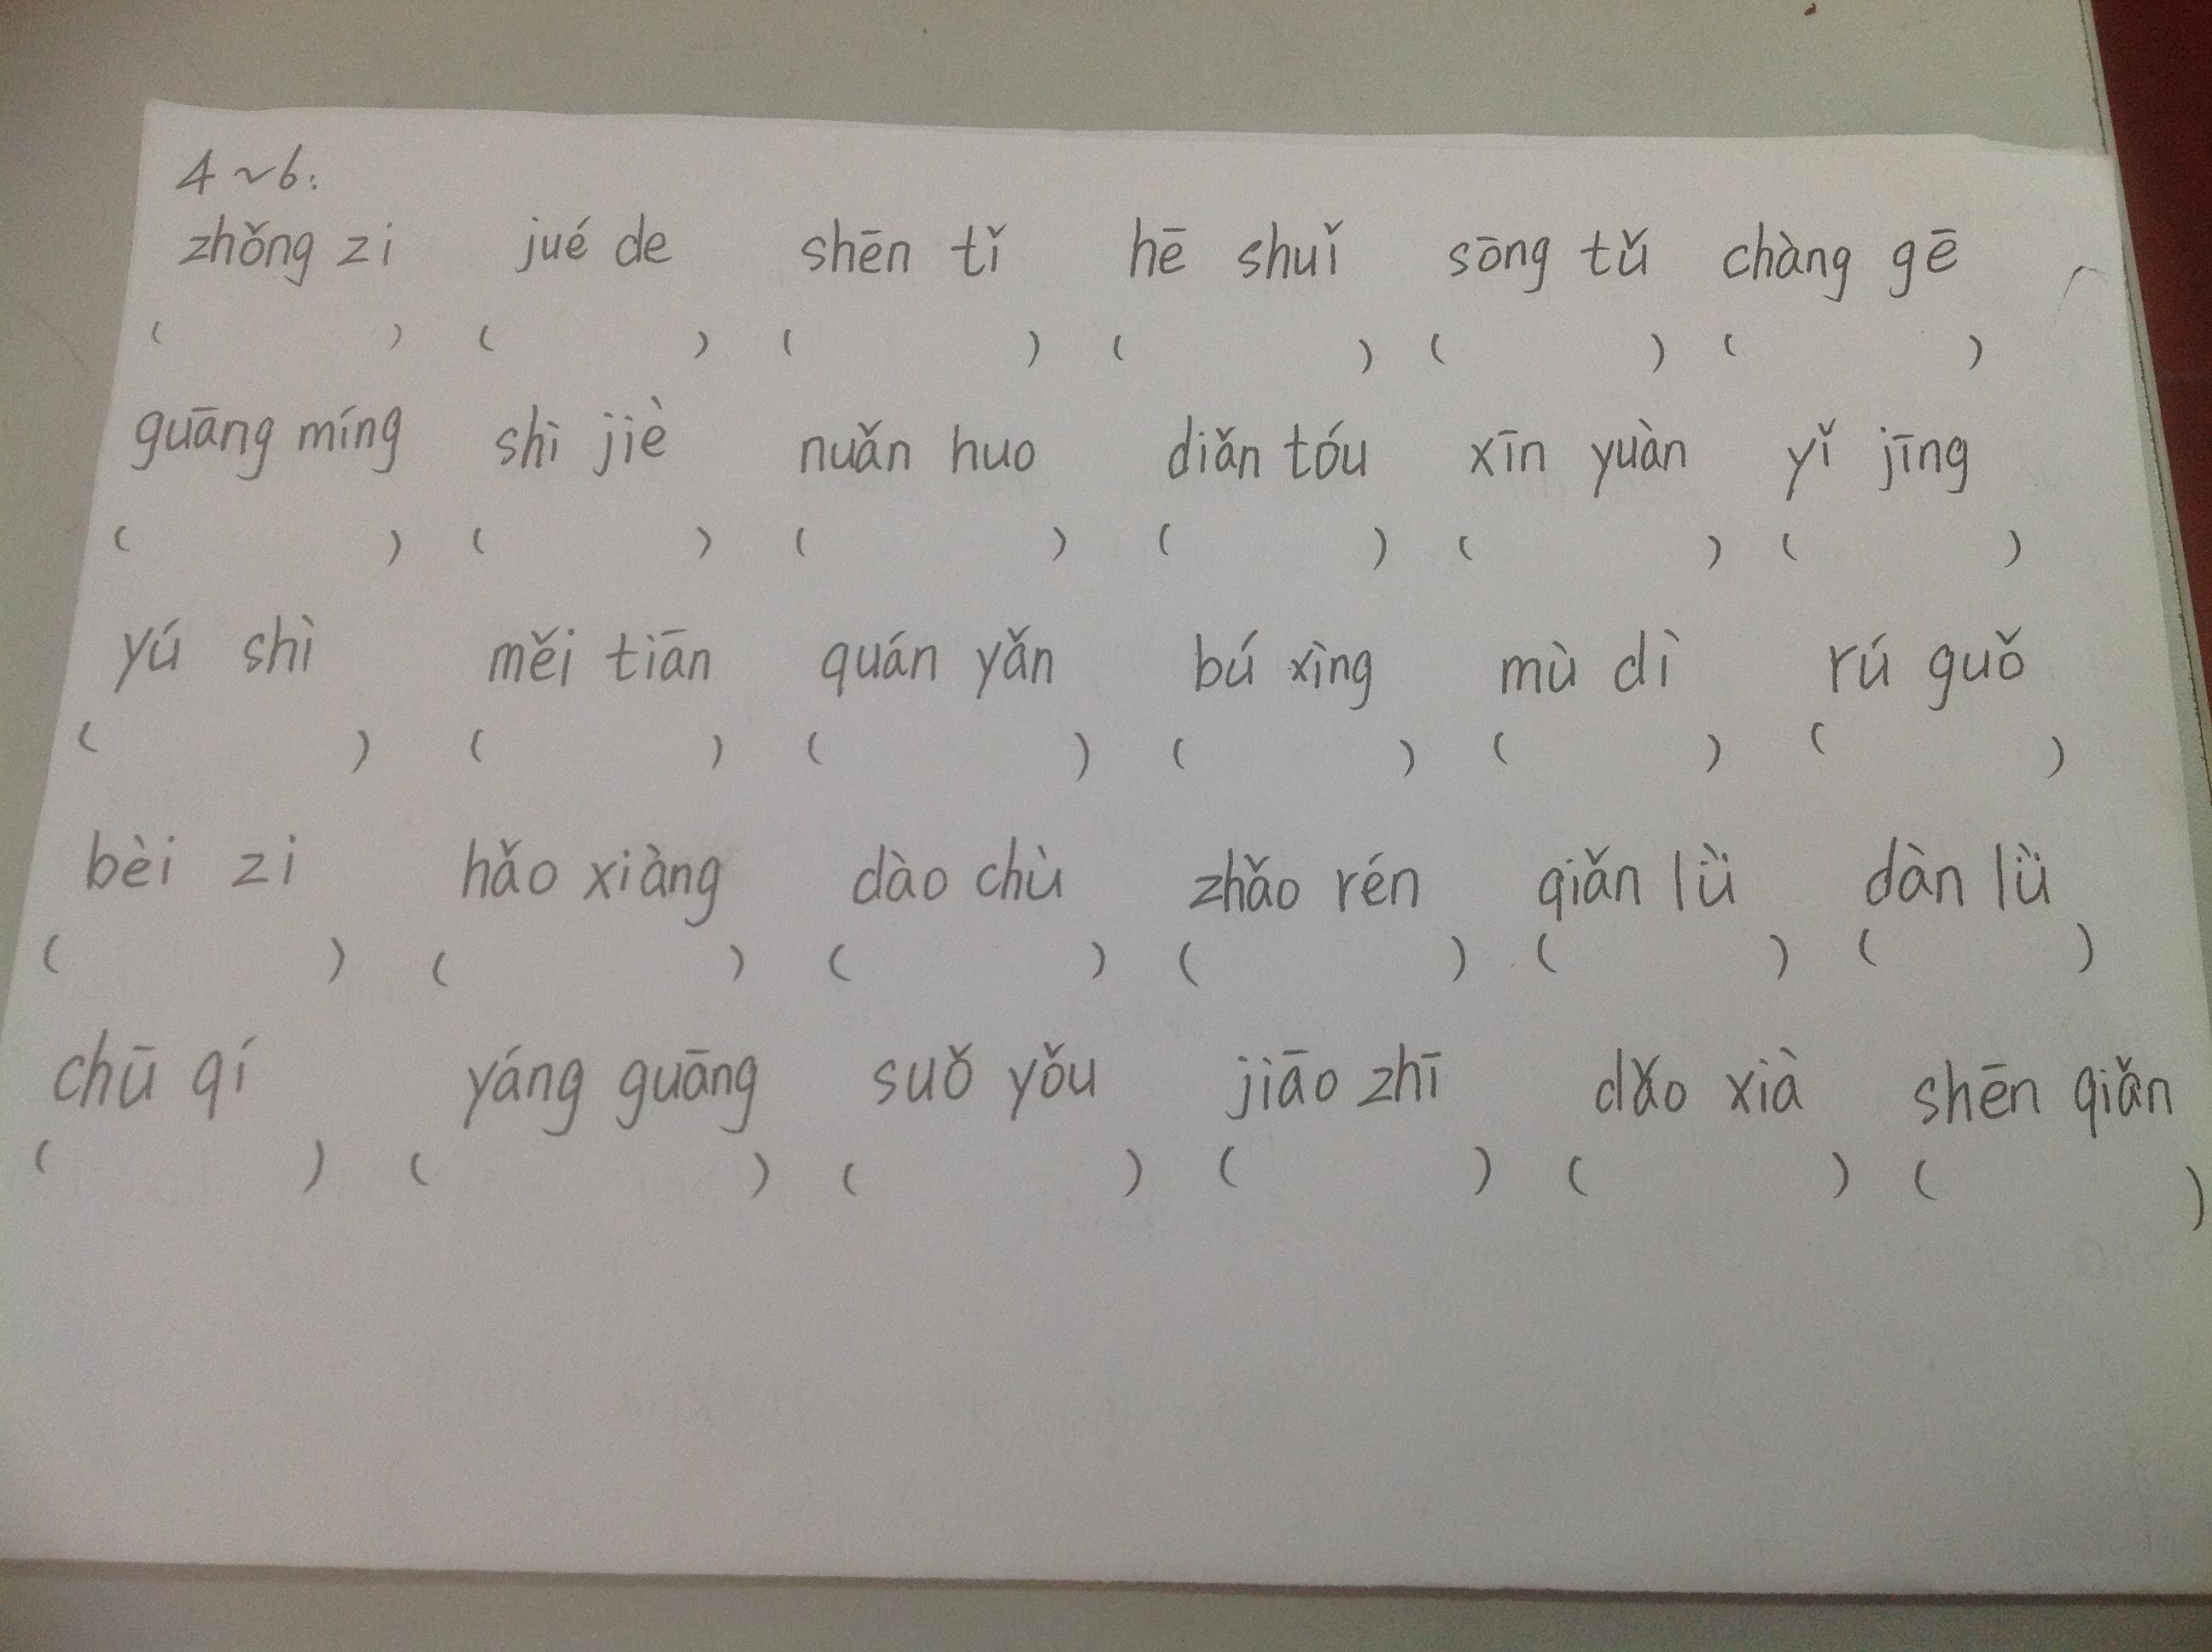 4~6:
zhǒng zi jué de shēn tǐ hē shuǐ sōng tǔ chàng gē
( ) ( ) ( ) ( ) ( ) ( )
guāng míng shì jiè nuǎn huo diǎn tóu xīn yuàn yǐ jīng
( ) ( ) ( ) ( ) ( ) ( )
yú shì měi tiān quán yǎn bú xìng mù dì rú guǒ
( ) ( ) ( ) ( ) ( ) ( )
bèi zi hǎo xiàng dào chù zhǎo rén qiǎn lǜ dàn lǜ
( ) ( ) ( ) ( ) ( ) ( )
chū qí yáng guāng suǒ yǒu jiāo zhī dǎo xià shēn qiǎn
( ) ( ) ( ) ( ) ( ) ( )